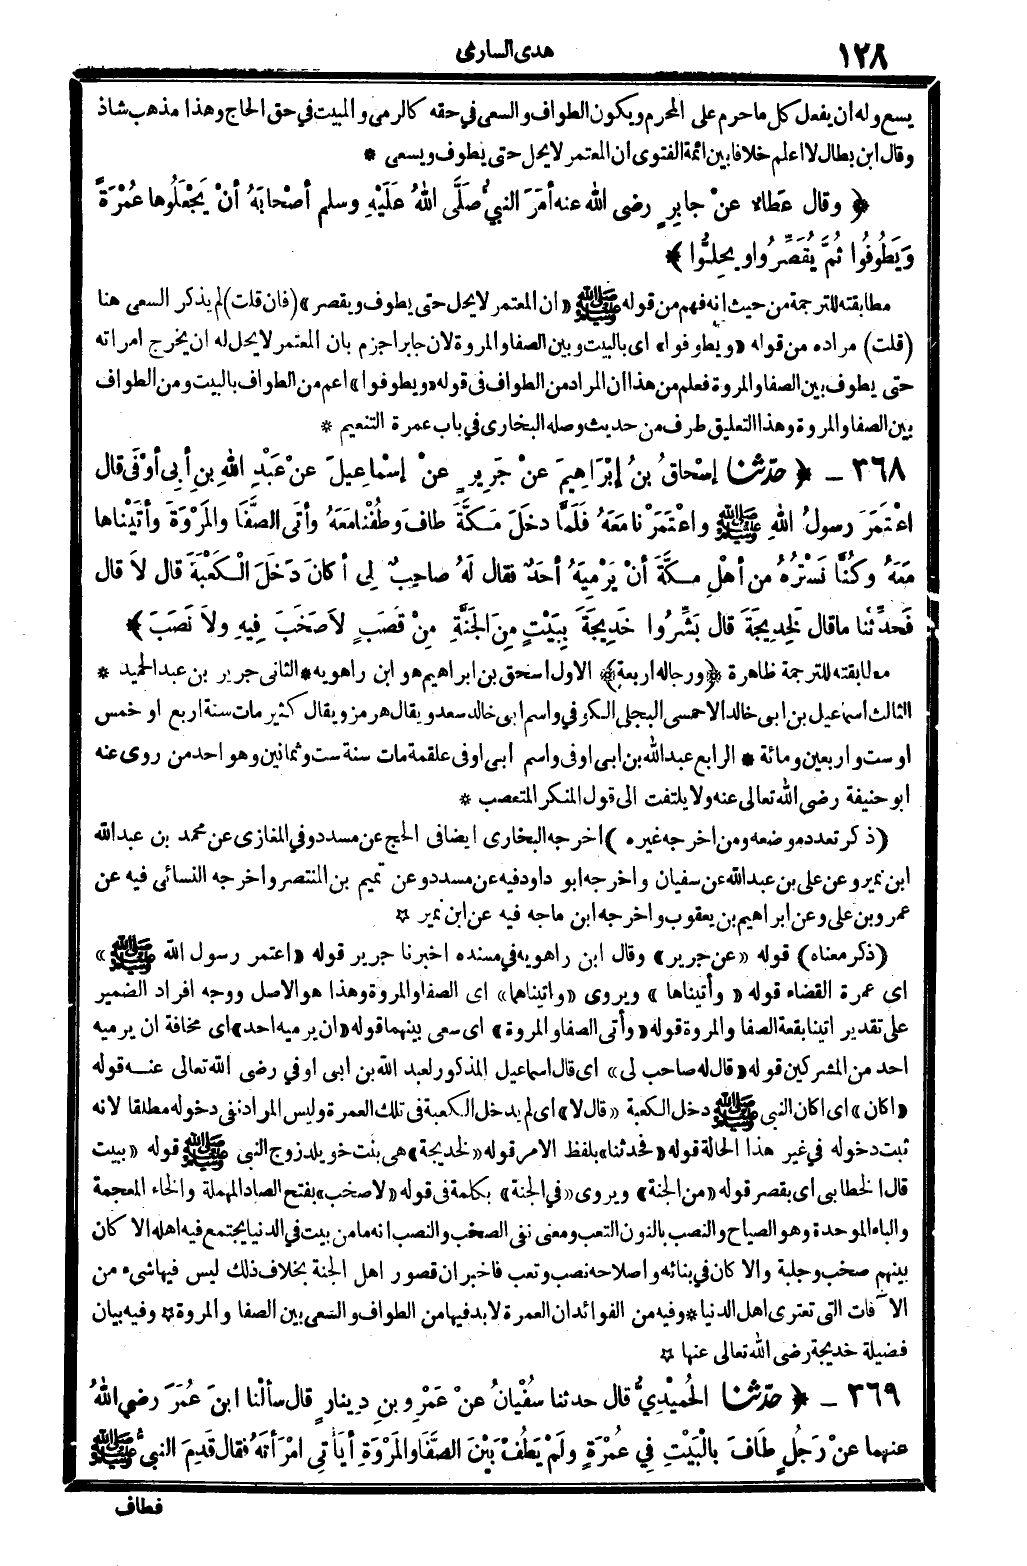 ١٢٨
هدى السارى
يسع وله ان يفعل كل ما حرم على المحرم ويكون الطواف والسعى في حقه كالرمى والمبيت في حق الحاج وهذا مذهب شاذ
وقال ابن بطال لا اعلم خلافا بين ائمة الفتوى ان المعتمر لا يحل حتى يطوف ويسعى *
﴿ وقال عَطاء عنْ جابِرٍ رضى الله عنه أمَرَ النبيُّ صَلَّى اللهُ عَلَيْهِ وسلم أصْحابَهُ أنْ يَجْعَلُوها عُمْرَةً
وَيَطُوفُوا ثُمَّ يُقَصِّرُوا ويحِلُّوا ﴾
مطابقته للترجمة من حيث انه فهم من قوله ﷺ «ان المعتمر لا يحل حتى يطوف ويقصر» (فان قلت) لم يذكر السعى هنا
(قلت) مراده من قوله «ويطوفوا» اى بالبيت وبين الصفا والمروة لان جابرا جزم بان المعتمر لا يحل له ان يخرج امراته
حتى يطوف بين الصفا والمروة فعلم من هذا ان المراد من الطواف فى قوله «ويطوفوا» اعم من الطواف بالبيت ومن الطواف
بين الصفا والمروة وهذا التعليق طرف من حديث وصله البخارى في باب عمرة التنعيم *
٣٦٨ ــ ﴿ حدّثنا إسْحاقُ بنُ إبْرَاهِيمَ عنْ جَرِيرٍ عنْ إسْماعِيلَ عنْ عَبْدِ اللهِ بنِ أبي أوْفَى قال
اعْتَمَرَ رسولُ اللهِ ﷺ واعْتَمَرْنا مَعَهُ فَلَمَّا دخَلَ مَكَّةَ طافَ وطُفْنا مَعَهُ وأتَى الصَّفَا والمَرْوَةَ وأتَيْناها
مَعَهُ وكُنَّا نَسْتُرُهُ من أهْلِ مكَّةَ أنْ يَرْمِيَهُ أحَدٌ فقال لَهُ صاحِبٌ لِي أكانَ دَخَلَ الْكَعْبَةَ قال لاَ قال
فَحَدِّثْنا ما قال لِخَدِيجَةَ قال بَشِّرُوا خَدِيجَةَ بِبَيْتٍ مِنَ الجَنَّةِ مِنْ قَصَبٍ لاَ صَخَبَ فِيهِ ولاَ نَصَبَ ﴾
مطابقته للترجمة ظاهرة ﴿ورجاله اربعة﴾ الاول اسحق بن ابراهيم هو ابن راهويه * الثانى جرير بن عبد الحميد *
الثالث اسماعيل بن ابى خالد الاحمسى البجلى الكوفي واسم ابى خالد سعد ويقال هرمز ويقال كثير مات سنة اربع او خمس
او ست واربعين ومائة * الرابع عبد الله بن ابى اوفى واسم ابى اوفى علقمة مات سنة ست وثمانين وهو احد من روى عنه
ابو حنيفة رضى الله تعالى عنه ولا يلتفت الى قول المنكر المتعصب *
(ذكر تعدد موضعه ومن اخرجه غيره) اخرجه البخارى ايضا فى الحج عن مسدد وفي المغازى عن محمد بن عبد الله
ابن نمير وعن على بن عبد الله عن سفيان واخرجه ابو داود فيه عن مسدد وعن تميم بن المنتصر واخرجه النسائى فيه عن
عمرو بن على وعن ابراهيم بن يعقوب واخرجه ابن ماجه فيه عن ابن نمير *
(ذكر معناه) قوله «عن جرير» وقال ابن راهويه في مسنده اخبرنا جرير قوله «اعتمر رسول الله ﷺ»
اى عمرة القضاء قوله «وأتيناها» ويروى «واتيناهما» اى الصفا والمروة وهذا هو الاصل ووجه افراد الضمير
على تقدير اتينا بقعة الصفا والمروة قوله «وأتى الصفا والمروة» اى سعى بينهما قوله «ان يرميه احد» اى مخافة ان يرميه
احد من المشركين قوله «قال له صاحب لى» اى قال اسماعيل المذكور لعبد الله بن ابى اوفي رضى الله تعالى عنه قوله
«اكان» اى اكان النبى ﷺ دخل الكعبة «قال لا» اى لم يدخل الكعبة فى تلك العمرة وليس المراد نفى دخوله مطلقا لانه
ثبت دخوله في غير هذا الحالة قوله «فحدثنا» بلفظ الامر قوله «لخديجة» هى بنت خويلد زوج النبى ﷺ قوله «ببيت
قال الخطابى اى بقصر قوله «من الجنة» ويروى «في الجنة» بكلمة فى قوله «لا صخب» بفتح الصاد المهملة والخاء المعجمة
والباء الموحدة وهو الصياح والنصب بالنون التعب ومعنى نفى الصخب والنصب انه ما من بيت في الدنيا يجتمع فيه اهله الا كان
بينهم صخب وجلبة والا كان في بنائه واصلاحه نصب وتعب فاخبر ان قصور اهل الجنة بخلاف ذلك ليس فيها شىء من
الآفات التى تعترى اهل الدنيا * وفيه من الفوائد ان العمرة لا بد فيها من الطواف والسعى بين الصفا والمروة * وفيه بيان
فضيلة خديجة رضى الله تعالى عنها *
٣٦٩ ــ ﴿ حدّثنا الحُمَيْدِيُّ قال حدثنا سُفْيانُ عنْ عَمْرِو بنِ دِينارٍ قال سألْنا ابنَ عُمَرَ رضي اللهُ
عنهما عنْ رَجُلٍ طَافَ بالْبَيْتِ فِي عُمْرَةٍ ولَمْ يَطُفْ بَيْنَ الصَّفَا والمَرْوَةِ أيَأتِي امْرَأتَهُ فقال قَدِمَ النبيُّ ﷺ
فطاف